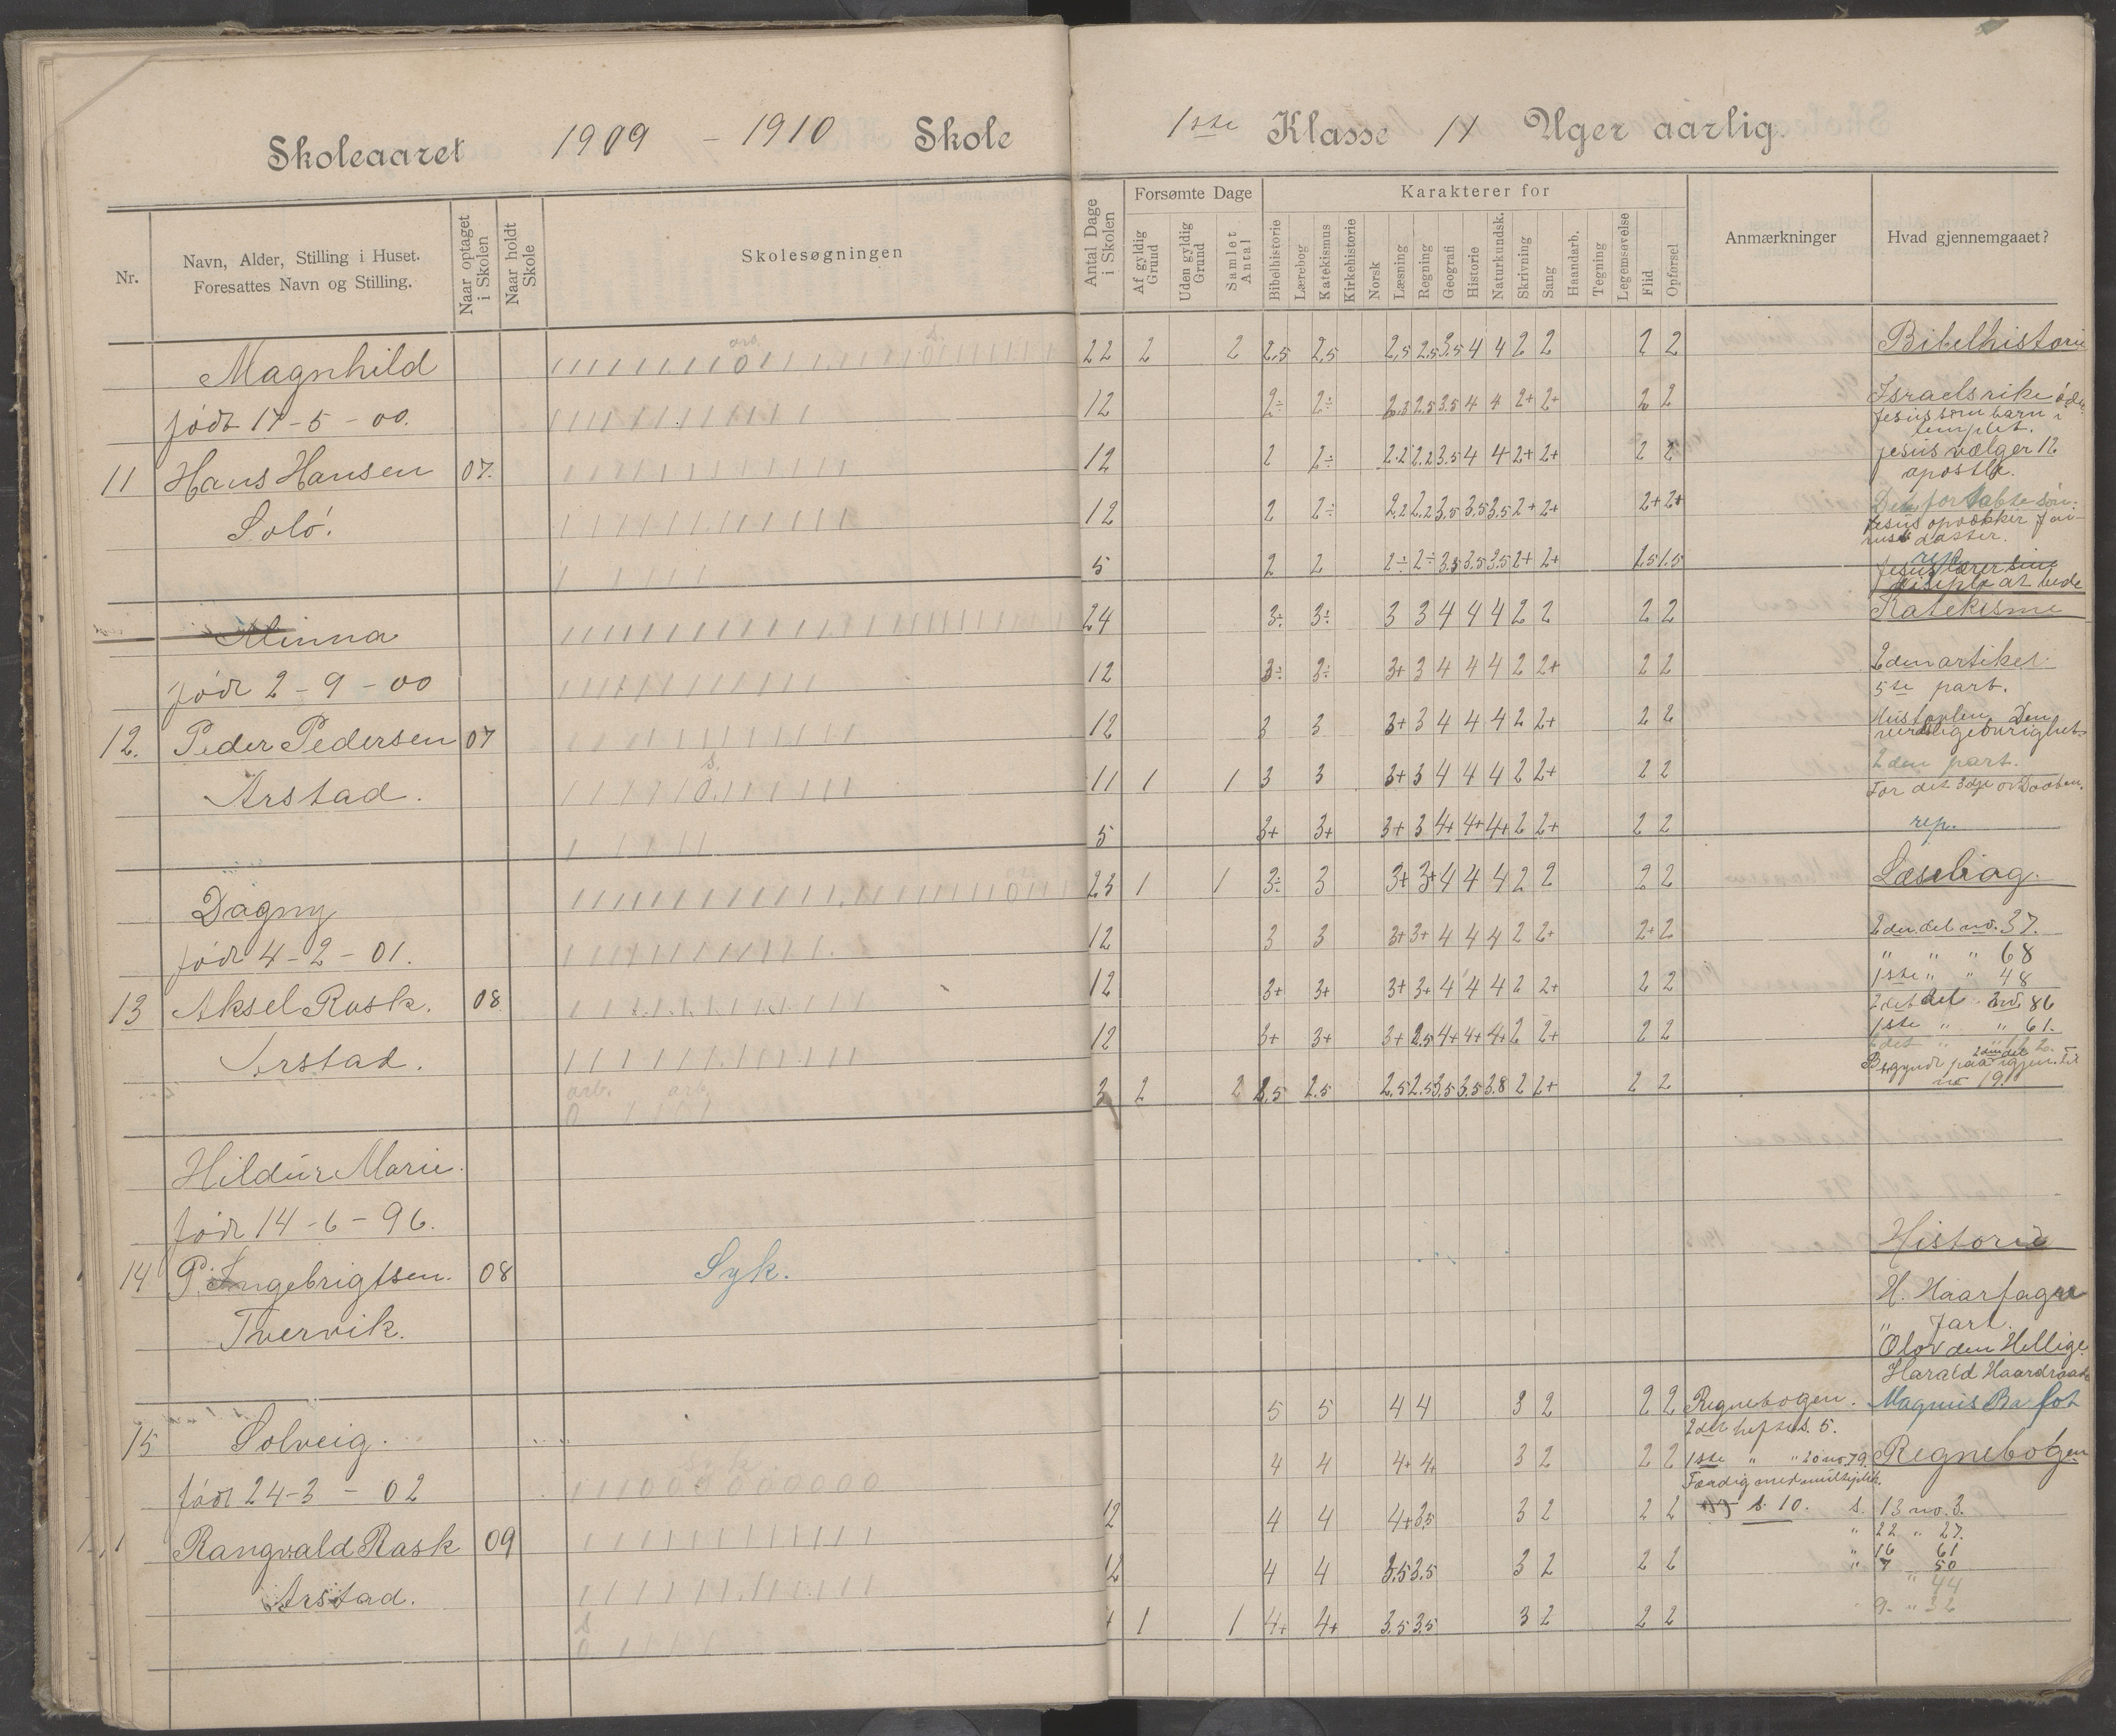 Skoleaaret 1909 - 1910 Skole
1ste Klasse Uger aarlig.
Nr.
Navn, Alder, Stilling i Huset.
Foresattes Navn og Stilling.
Naar optaget i Skolen
Naar holdt Skole
Skolesøgningen
Antal Dage i Skolen
Forsømte Dage
Af gyldig Grund
Uden gyldig Grund
Samlet Antal
Karakterer for
Bibelhistorie
Lærebog
Katekismus
Kirkehistorie
Norsk
Læsning
Regning
Geografi
Historie
Naturkundsk.
Skrivning
Sang
Haandarb.
Tegning
Legemsøvelse
Flid
Opførsel
Anmærkninger
Hvad gjennemgaaet?
Magnhild 22 2 2 2,5 2,5 2,5 2,5 3,5 4 4 2 2 2 2 Bibelhistorie
født 17-5-00. 12 2÷ 2÷ 2,5 3,5 4 4 2+ 2+ 2 2 Israelsrike øde
Jesus som barn i templet.
11 Hans Hansen 07. 12 2 2÷ 2.2 2,2 3,5 4 4 2+ 2+ 2 2 Jesus vælger 12 apostle.
Solö. 12 2 2÷ 2,2 2,2 3,5 3,5 3,5 2+ 2+ 2+ 2+ Den fortabte søn.
Jesus opvækker Jairus' datter.
5 2 2 2÷ 2÷ 3,5 3,5 3,5 2+ 2+ 1.5 1.5 Jesus lærer sine disiple at bede
Minna 24 3÷ 3÷ 3 3 4 4 4 2 2 2 2 Katekisme
født 2-9-00 12 3÷ 3÷ 3+ 3 4 4 4 2 2+ 2 2 2den artikel
5te part.
12. Peder Pedersen 07 12 3 3 3+ 3 4 4 4 2 2+ 2 2 Hustavlen Den verdslige øvrighet.
Arstad. 11 1 1 3 3 3+ 3 4 4 4 2 2+ 2 2 2den part.
For det 3dje av Daaben.
5 3+ 3+ 3+ 3 4+ 4+ 4+ 2 2+ 2 2 rep.
Dagny 23 1 1 3÷ 3 3+ 3+ 4 4 4 2 2 2 2
født 4-2-01. 12 3 3 3+ 3+ 4 4 4 2 2+ 2+ 2 2den del no. 37.
" " " 68
13 Aksel Rask. 08 12 3+ 3+ 3+ 3+ 4 4 4 2 2+ 2 2 1ste " " 48
86
Arstad. 12 3+ 3+ 3+ 2.5 4+ 4+ 4+ 2 2+ 2 2 1ste " " 61.
arb. arb.
3 2 2 2.5 2.5 2,5 2.5 3,5 3.5 3.8 2 2+ 2 2 no 19.
Hildur Marie.
født 14-6-96. Historie
14 P. Ingebrigtsen. 08 Syk. H. Haarfagre
Tvervik. " Jarl.
Olav den Hellige.
Harald Haardraade
15 Solveig. 5 5 4 4 3 2 2 2 Regnebogen. Magnus Barfot
2det hefte s. 5.
født 24-3-02 Syk 4 4 4+ 4+ 3 2 2 2 1ste " " 20 no. 79. Regnebogen
Færdig med multiplik.
Rangvald Rask 09 12 4 4 4+ 3,5 3 2 2 2 s. 10. s. 13 no. 3.
" 22 " 27.
Arstad. 12 4 4 3.5 3.5 3 2 2 2 " 16 61
" 7 50
" 44
4 1 1 4+ 4+ 3.5 3.5 3 2 2 2 " 9 " 32